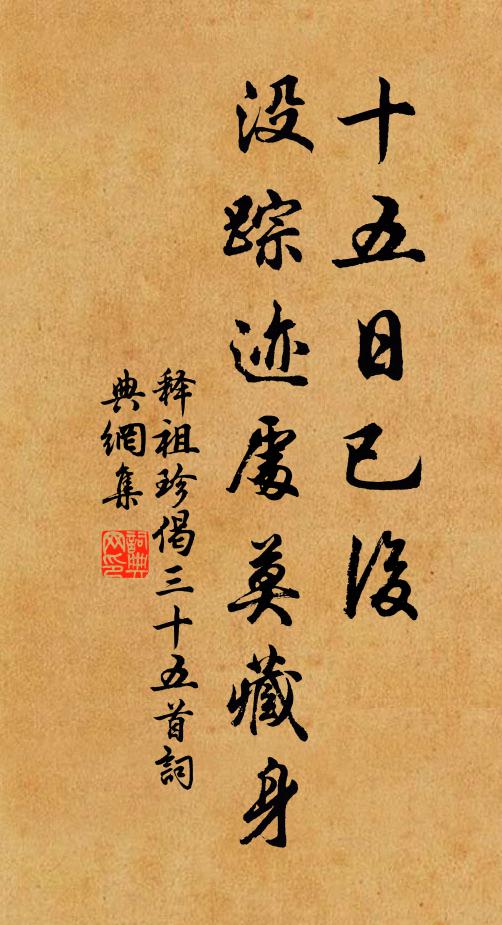 十五日已後
没踪迹處莫藏身
释祖珍偈三十五首詞
典網集
詞典網印